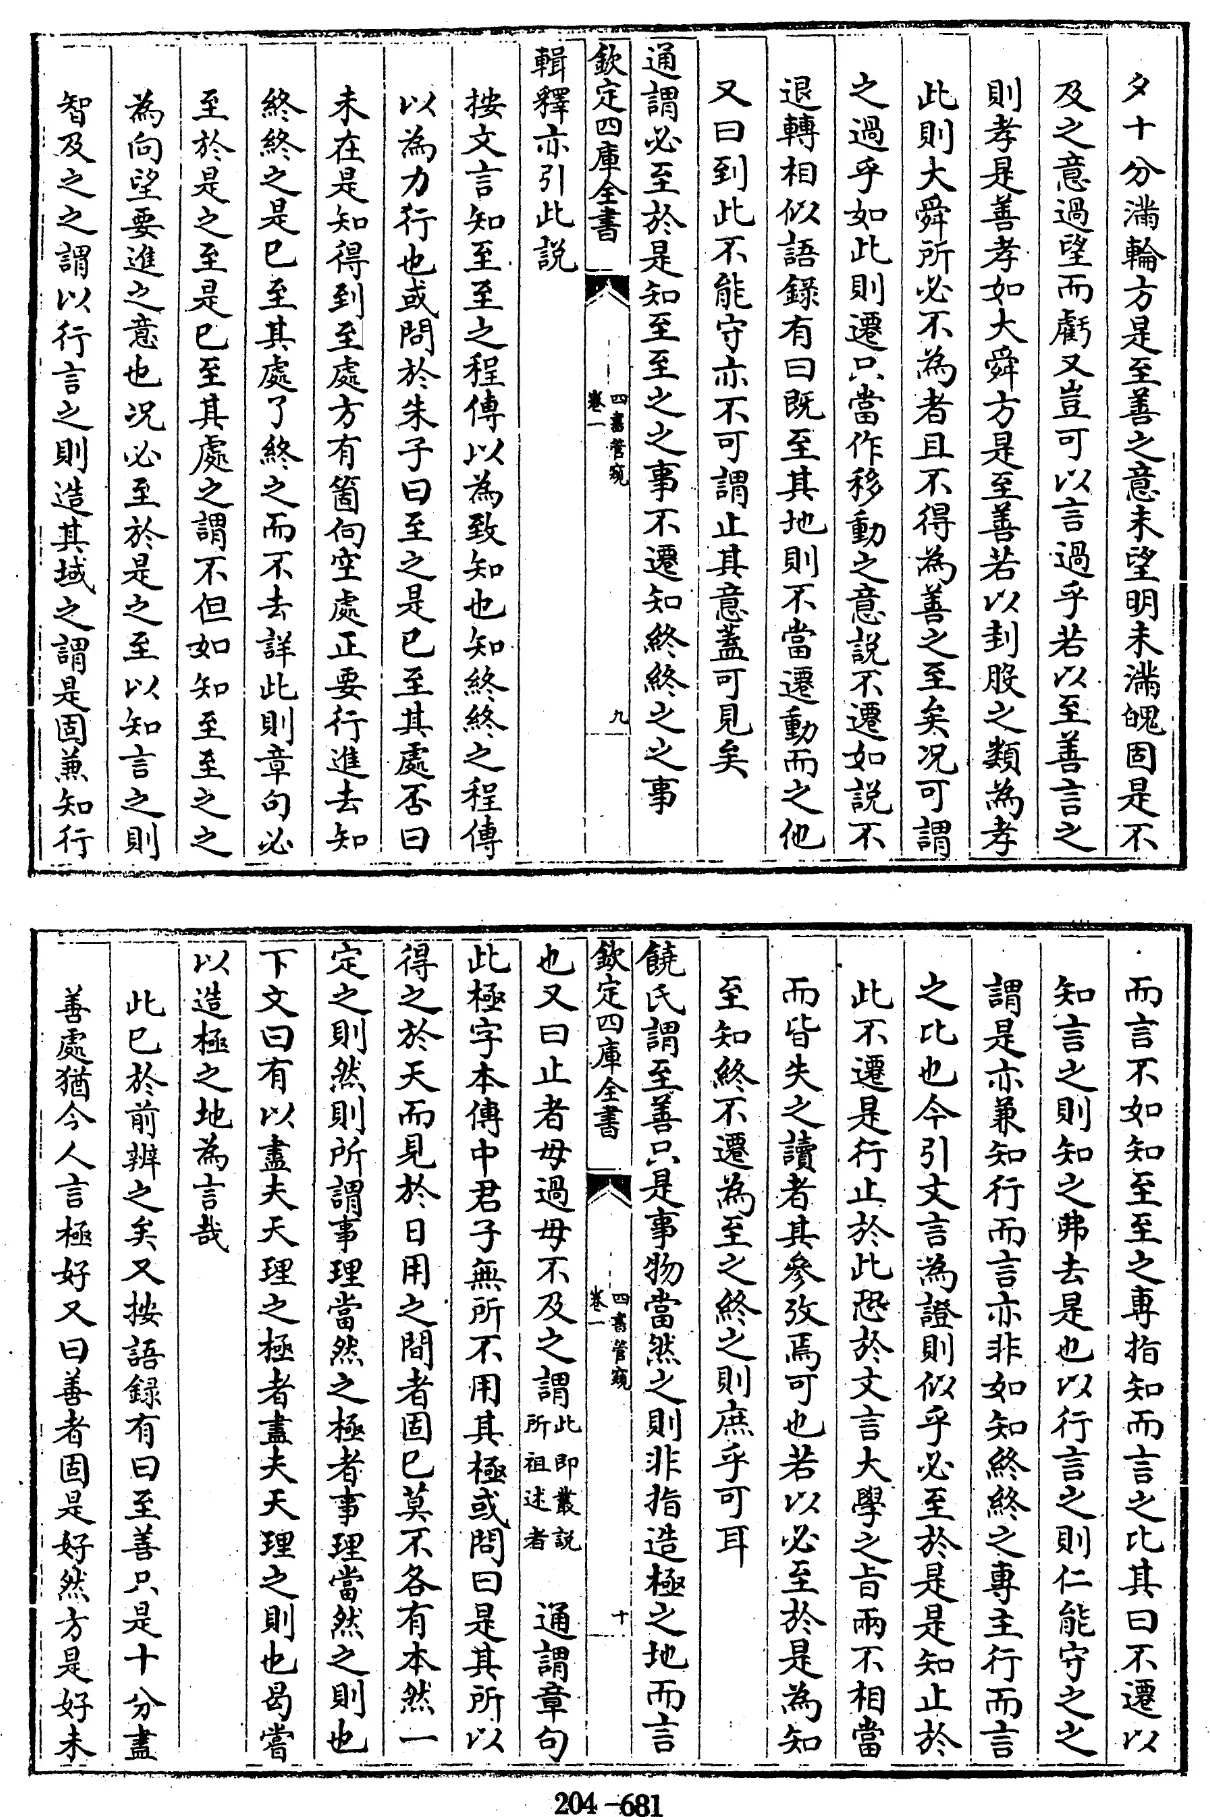 夕十分滿輪方是至善之意未望明未滿魄固是不
及之意過望而虧又豈可以言過乎若以至善言之
則孝是善孝如大舜方是至善若以刲股之類為孝
此則大舜所必不為者且不得為善之至矣況可謂
之過乎如此則遷只當作移動之意説不遷如説不
退轉相似語錄有曰既至其地則不當遷動而之他
又曰到此不能守亦不可謂止其意蓋可見矣
通謂必至於是知至至之之事不遷知終終之之事
欽定四庫全書
四書管窺
卷一
九
輯釋亦引此説
按文言知至至之程傳以為致知也知終終之程傳
以為力行也或問於朱子曰至之是已至其處否曰
未在是知得到至處方有箇向空處正要行進去知
終終之是已至其處了終之而不去詳此則章句必
至於是之至是已至其處之謂不但如知至至之之
為向望要進之意也況必至於是之至以知言之則
智及之之謂以行言之則造其域之謂是固兼知行
而言不如知至至之專指知而言之比其曰不遷以
知言之則知之弗去是也以行言之則仁能守之之
謂是亦兼知行而言亦非如知終終之專主行而言
之比也今引文言為證則似乎必至於是是知止於
此不遷是行止於此恐於文言大學之旨兩不相當
而皆失之讀者其參攷焉可也若以必至於是為知
至知終不遷為至之終之則庶乎可耳
饒氏謂至善只是事物當然之則非指造極之地而言
欽定四庫全書
四書管窺
卷一
十
也又曰止者毋過毋不及之謂此即叢説所祖述者 通謂章句
此極字本傳中君子無所不用其極或問曰是其所以
得之於天而見於日用之間者固已莫不各有本然一
定之則然則所謂事理當然之極者事理當然之則也
下文曰有以盡夫天理之極者盡夫天理之則也曷嘗
以造極之地為言哉
此已於前辨之矣又按語録有曰至善只是十分盡
善處猶今人言極好又曰善者固是好然方是好未
204-681